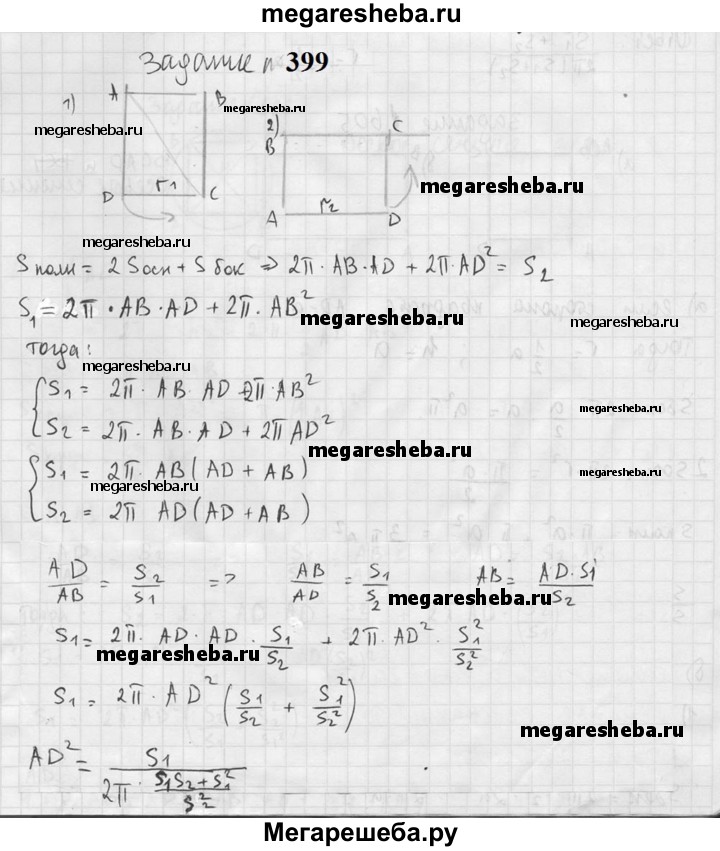 megaresheba.ru
Задание n 399
1) A B
megaresheba.ru
megaresheba.ru
2) B C
megaresheba.ru
D r1 C
A r2 D
megaresheba.ru
S полн = 2 Sосн + S бок => 2π · AB · AD + 2π · AD² = S₂
S₁ = 2π · AB · AD + 2π · AB²
megaresheba.ru
megaresheba.ru
тогда:
megaresheba.ru
{ S₁ = 2π · AB · AD 2π · AB²
megaresheba.ru
S₂ = 2π · AB · AD + 2π AD²
megaresheba.ru
{ S₁ = 2π · AB (AD + AB)
megaresheba.ru
megaresheba.ru
S₂ = 2π AD (AD + AB)
AD/AB = S₂/S₁ => AB/AD = S₁/S₂ AB = AD · S1/S₂
megaresheba.ru
S₁ = 2π · AD · AD · S₁/S₂ + 2π · AD² · S₁²/S₂²
megaresheba.ru
S₁ = 2π · AD² (S₁/S₂ + S₁²/S₂²)
megaresheba.ru
AD² = S₁/(2π · (S₁S₂ + S₁²)/S₂²)
Мегарешеба.ру